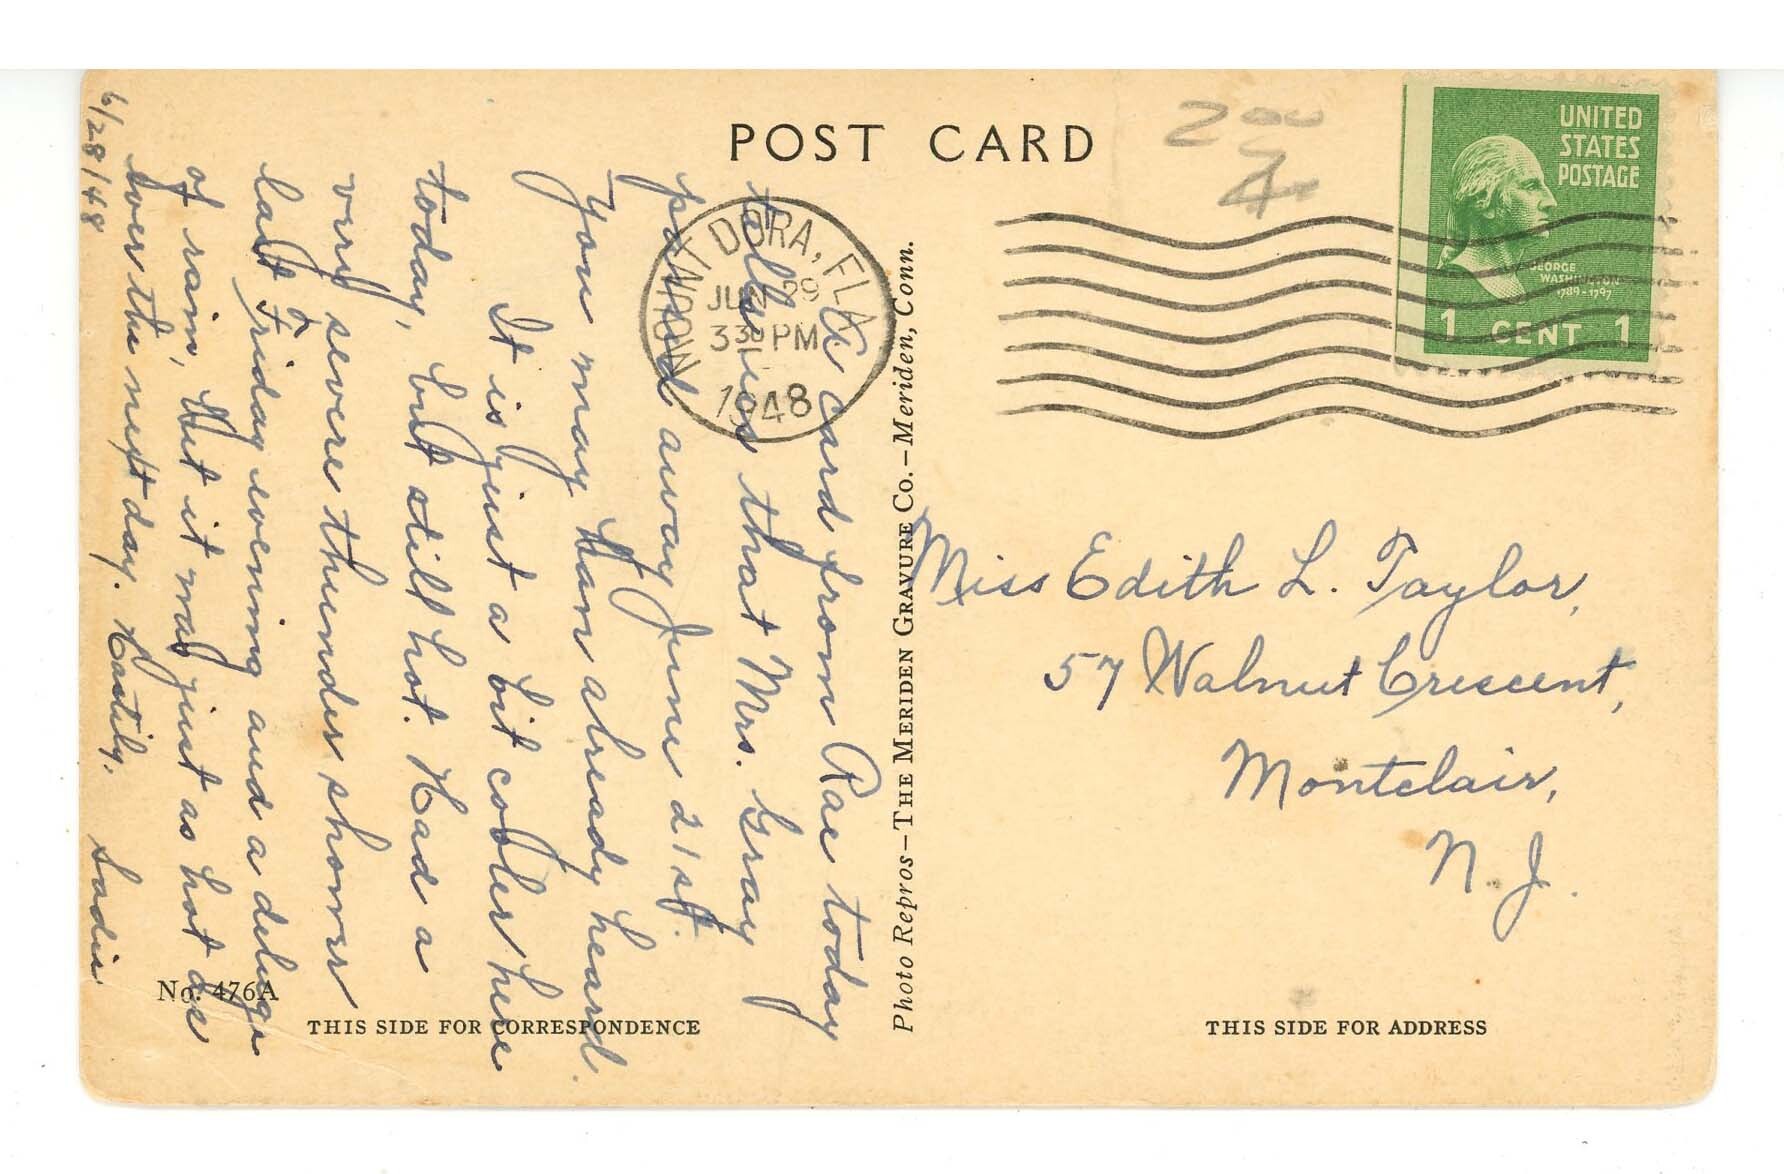 POST CARD
6/28/48
A card from Rae today
tells us that Mrs. Gray
passed away June 21st.
You may have already heard.
It is just a bit cooler here
today, but still hot. Had a
very severe thunder shower
last Friday evening and a deluge
of rain, but it was just as hot as
ever the next day. Hastily,
Sadie
MOUNT DORA, FLA.
JUN 29
3 30 PM
1948
2 00
4
UNITED
STATES
POSTAGE
GEORGE
WASHINGTON
1789-1797
1 CENT 1
Photo Repros—THE MERIDEN GRAVURE Co.—Meriden, Conn.
Miss Edith L. Taylor,
57 Walnut Crescent,
Montclair,
N. J.
No. 476A
THIS SIDE FOR CORRESPONDENCE
THIS SIDE FOR ADDRESS